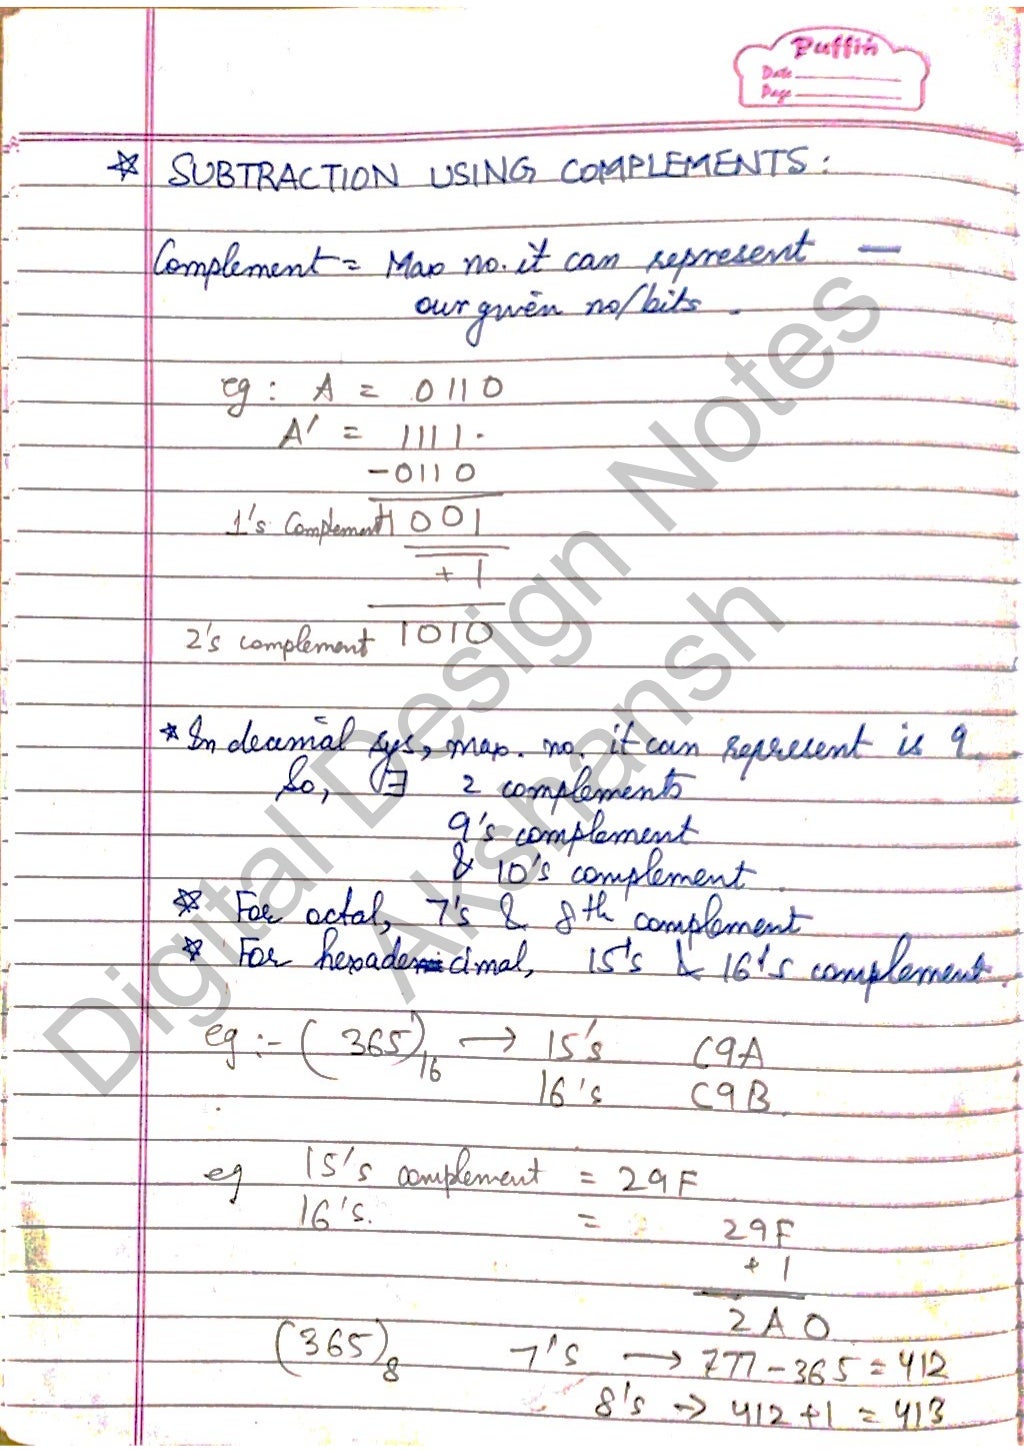 Puffin
Date
Page
☆ SUBTRACTION USING COMPLEMENTS:
Complement = Max no. it can represent —
our given no/bits.
eg: A = 0110
A' = 1111.
-0110
1's Complement 1001
+ 1
2's complement 1010
* In decimal sys, max. no. it can represent is 9
So, ∃ 2 complements
9's complement
& 10's complement.
☆ For octal, 7's & 8th complement
☆ For hexadecimal, 15's & 16's complement.
eg:- (365)16 → 15's C9A
16's C9B.
eg 15's complement = 29F
16's. = 29F
+ 1
2A0
(365)8 7's → 777-365 = 412
8's → 412+1 = 413
Digital Design Notes
Akshansh